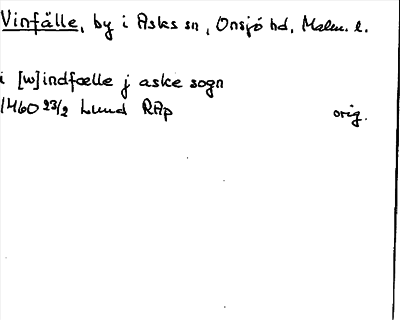 Vinfälle, by i Asks sn, Onsjö hd, Malm. l.
i [w]indfælle j aske sogn
1460 23/2 Lund RAp orig.